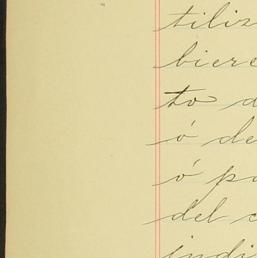 tiliz
biere
to d
ó de
ó pa
del c
indi